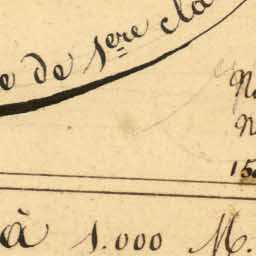 e de 1ere cla
N
n
15
à 1.000 M.